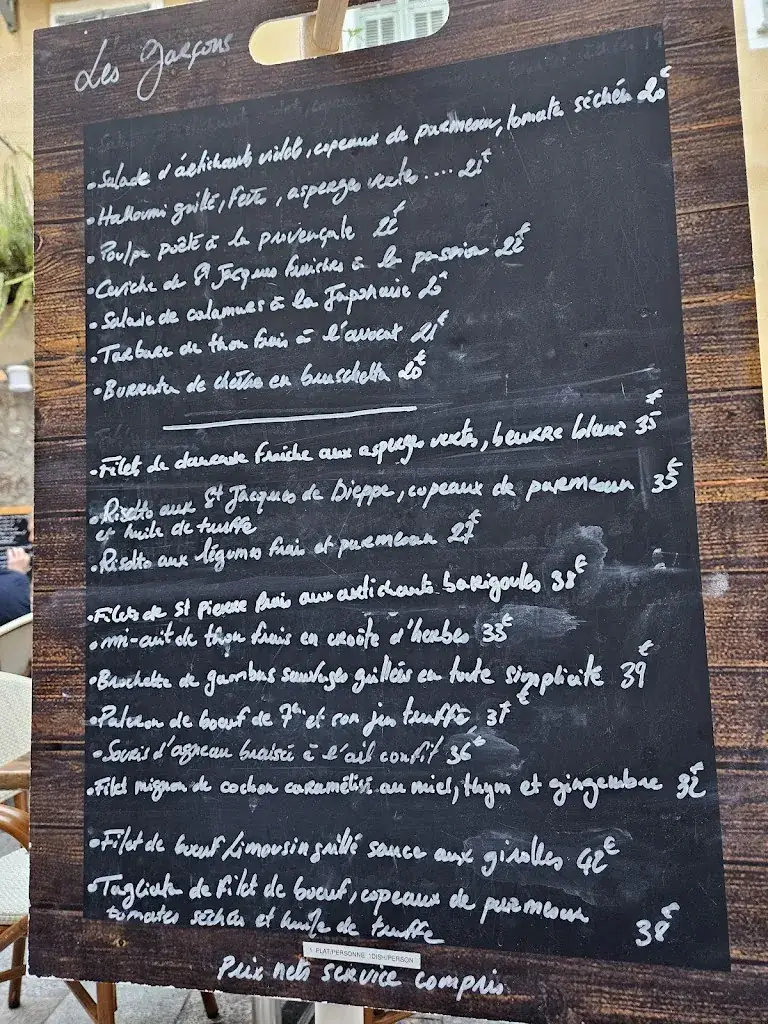 Les Garçons
•Salade d'artichauts violet, copeaux de parmesan, tomate séchés 20€
•Halloumi grillé, Feta, asperge vertes .... 21€
•Poulpe poêlé à la provençale 22€
•Ceviche de St Jacques fraiches à la passion 22€
•Salade de calamars à la Japonaise 20€
•Tartare de thon frais à l'avocat 21€
•Burrata de chèvre en bruschetta 20€
•Filet de daurade fraîche aux asperges vertes, beurre blanc 35€
•Risotto aux St Jacques de Dieppe, copeaux de parmesan 35€
et huile de truffe
•Risotto aux légumes frais et parmesan 27€
•Filets de St Pierre frais aux artichauts barigoules 38€
•mi-cuit de thon frais en croûte d'herbes 33€
•Brochette de gambas sauvages grillées en toute simplicité 39€
•Paleron de boeuf de 7h et son jus truffé 37€
•Souris d'agneau braisée à l'ail confit 36€
•Filet mignon de cochon caramélisé au miel, thym et gingembre 32€
•Filet de boeuf Limousin grillé sauce aux girolles 42€
•Tagliata de Filet de boeuf, copeaux de parmesan
tomates séchées et huile de truffe 38€
1 PLAT/PERSONNE 1DISH/PERSON
Prix nets service compris